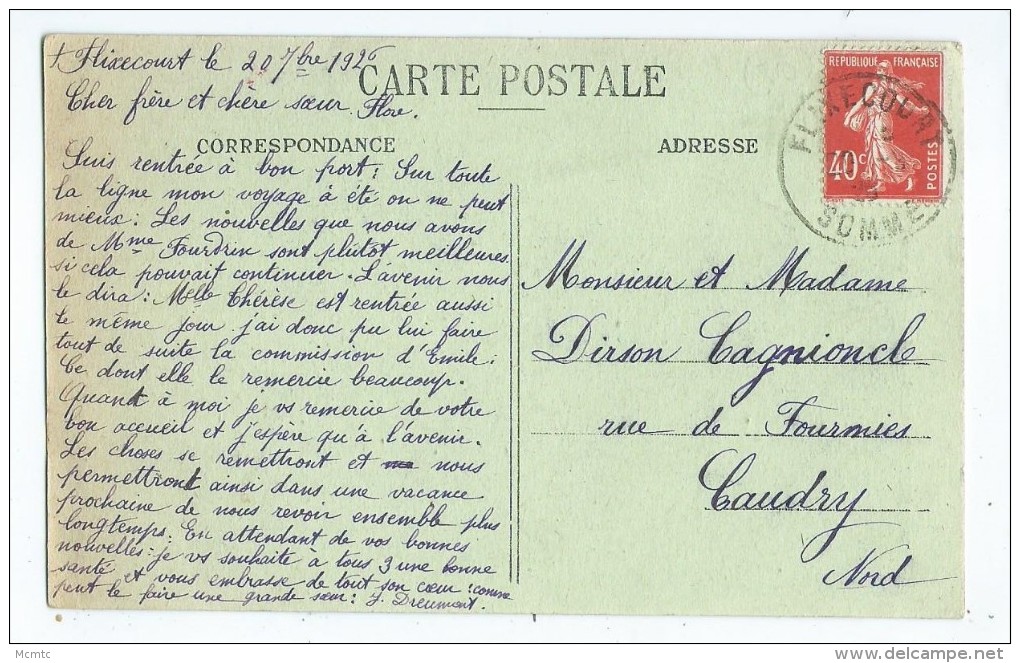 + Flixecourt le 20 7bre 1926
CARTE POSTALE
Cher frère et chère sœur Flore.
CORRESPONDANCE
Suis rentrée à bon port; Sur toute
la ligne mon voyage à été on ne peut
mieux: Les nouvelles que nous avons
de Mme Fourdrin sont plutôt meilleures.
si cela pouvait continuer. L'avenir nous
le dira: Melle Thérèse est rentrée aussi
le même jour j'ai donc pu lui faire
tout de suite la commission d'Emile:
Ce dont elle le remercie beaucoup.
Quant à moi je vs remercie de votre
bon accueil et j'espère qu'à l'avenir.
Les choses se remettront et nous
permettront ainsi dans une vacance
prochaine de nous revoir ensemble plus
longtemps: En attendant de vos bonnes
nouvelles: je vs souhaite à tous 3 une bonne
santé et vous embrasse de tout son cœur: comme
peut le faire une grande sœur: J. Dreumont.
ADRESSE
RÉPUBLIQUE FRANÇAISE
40c
POSTES
FLIXECOURT
SOMME
Monsieur et Madame
Dirson Cagnioncle
rue de Fourmies
Caudry
Nord
Mcmtc
www.delcampe.net